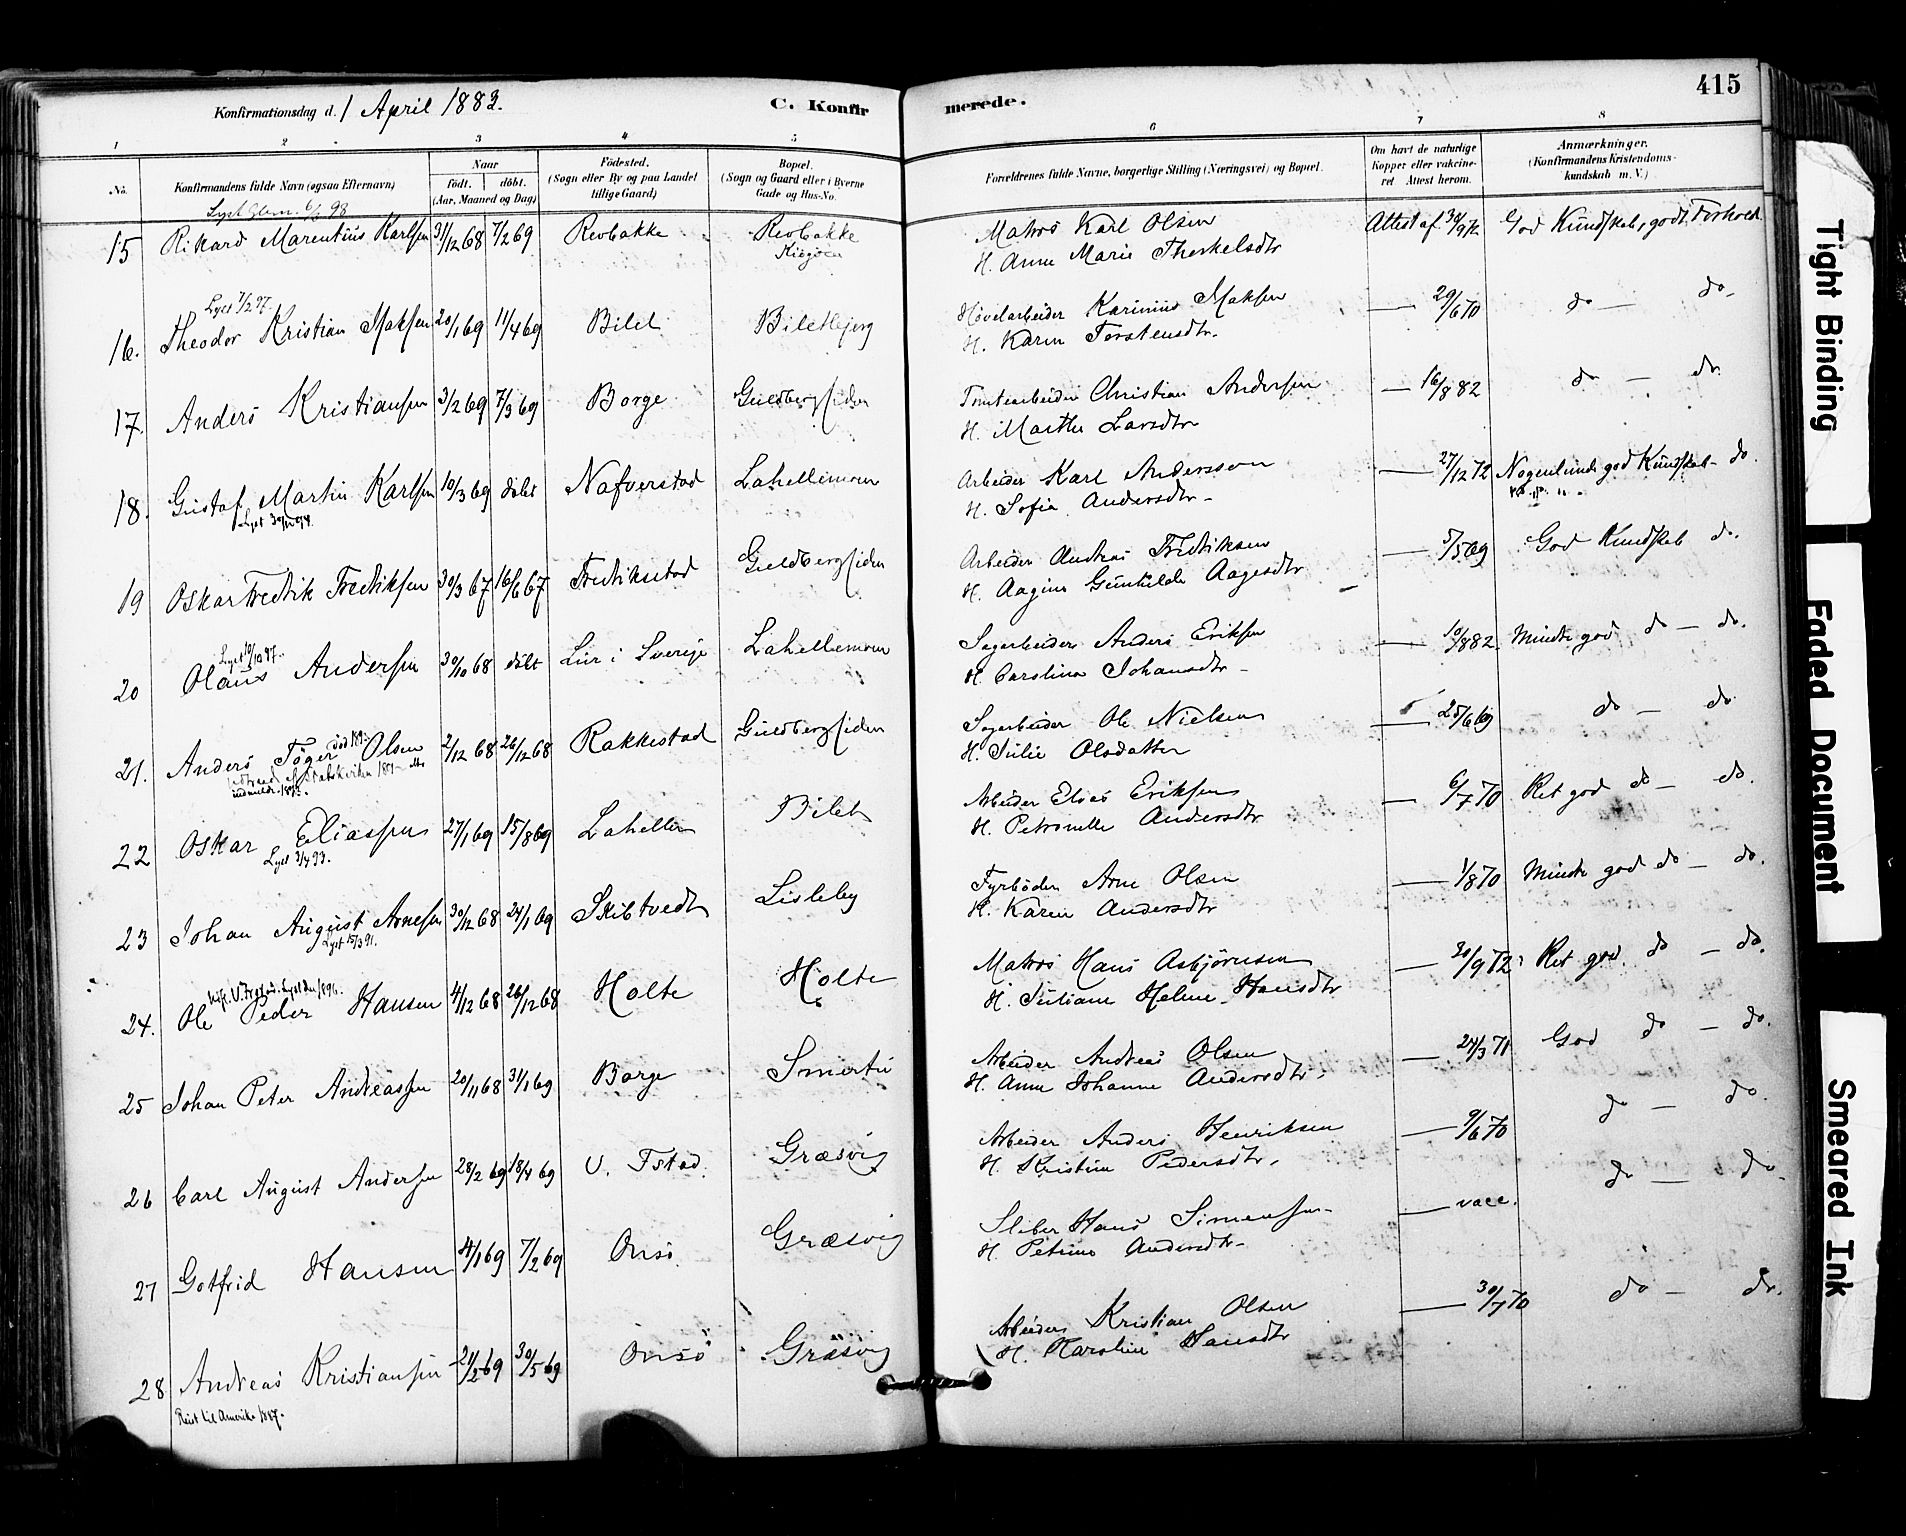 415
Konfirmationsdag d. 1 April 1883. C. Konfir merede.
1 2 3 4 5 6 7 8
No. Konfirmandens fulde Navn (ogsaa Efternavn) Naar født. døbt. (Aar, Maaned og Dag) Fødested. (Sogn eller By og paa Landet tillige Gaard) Bopæl. (Sogn og Gaard eller i Byerne Gade og Hus-No. Forældrenes fulde Navne, borgerlige Stilling (Næringsvei) og Bopæl. Om havt de naturlige Kopper eller vakcineret. Attest herom. Anmærkninger. (Konfirmandens Kristendomskundskab m. V.)
Lyst Glem. 6/6 98
15 Rikard Marentius Karlsen 31/12 68 7/2 69 Revbakke Revbakke Matros Karl Olsen Attest af 30/9 72 God Kundskab, godt Forhold
H. Anne Marie Therkelsdtr
Lyst 7/2 97
16. Theodor Kristian Maksen 20/1 69 11/4 69 Bilet Biletbjerg Høvelarbeider Karinius Maksen — 29/6 70 do — do
H. Karen Torstensdtr.
17. Anders Kristiansen 3/2 69 7/3 69 Borge Guldbergsiden Tomtearbeider Christian Andersen — 16/8 82 do — do
H. Marthe Larsdtr
18. Gustaf Martin Karlsen 10/3 69 døbt Nafverstad Lahellemoen Arbeider Karl Andersson — 27/12 72 Nogenlunde god Kundskab do.
H. Sofia Andersdtr
19 Oskar Fredrik Fredriksen 30/3 67 16/6 67 Fredrikstad Guldbergsiden Arbeider Andreas Fredriksen — 5/5 69 God Kundskab do.
H. Aagine Gunhilde Aagesdtr
Lyst 10/10 97.
20 Olaus Andersen 30/10 68 døbt Lur i Sverije Lahellemoen Sagarbeider Anders Eriksen — 10/8 82 Mindre god do — do.
H. Carolina Johansdtr
21. Anders Töger Olsen 2/12 68 26/12 68 Rakkestad Guldbergsiden Sagarbeider Ole Nielsen — 25/6 69 do — do
H. Julie Olsdatter
22 Oskar Eliassen 27/1 69 15/8 69 Lahellen Bilet Arbeider Elias Eriksen — 6/7 70 Ret god do — do.
Lyst 3/4 93.
H. Petronelle Andersdtr
23 Johan August Arnesen 30/12 68 24/1 69 Skibtvedt Lisleby Fyrbøder Arne Olsen — 1/8 70 Mindre god do — do.
Lyst 15/3 91.
H. Karen Andersdtr
24. Ole Peder Hansen 4/12 68 26/12 68 Holte Holte Matros Hans Asbjørnsen — 30/9 72 Ret god. do — do.
H. Juliane Helene Hansdtr
25 Johan Peter Andreassen 20/11 68 31/1 69 Borge Smertu Arbeider Andreas Olsen — 24/3 71 God do — do.
H. Anne Johanne Andersdtr.
26 Carl August Andersen 28/2 69 18/4 69 V. Fstad. Græsvig Arbeider Anders Henriksen — 9/6 70 do — do.
H. Kristine Pedersdtr.
27 Gotfrid Hansen 4/1 69 7/2 69 Onsø. Græsvig Sliber Hans Simensen — vacc. do — do
H. Petrine Andersdtr
28 Andreas Kristiansen 21/2 69 30/5 69 Onsø Græsvig Arbeider Kristian Olsen — 30/7 70 do — do.
H. Karoline Hansdtr
Reist til Amerika 1887.
Tight Binding
Faded Document
Smeared Ink